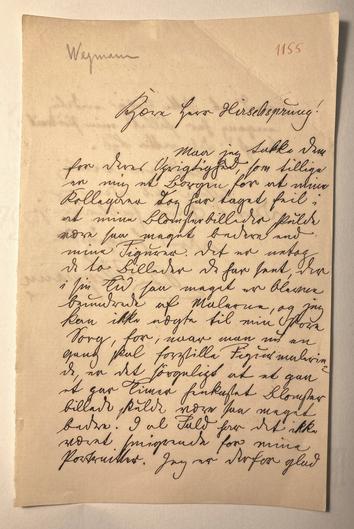 Wegmann
1155
Kjære Herr Hirschsprung!
Maa jeg takke Dem
for deres Oprigtighed, som tillige
er mig et Borgen for at mine
Kollegaer dog har taget feil i
at mine blomsterbilleder skulde
være saa meget bedre end
mine Figurer. Det er netop
de to Billeder De har seet, der
i sin Tid saa meget er blevne
beundrede af Malerne, og jeg
kan ikke nægte til min store
Sorg, for, naar man nu en
gang skal forestille Figurmalerin-
de, er det sørgeligt at et gan
et par Timer henkastet blomster
billede skulde være saa meget
bedre. I al Fald har det ikke
været smigrende for mine
Portraitter. Jeg er derfor glad